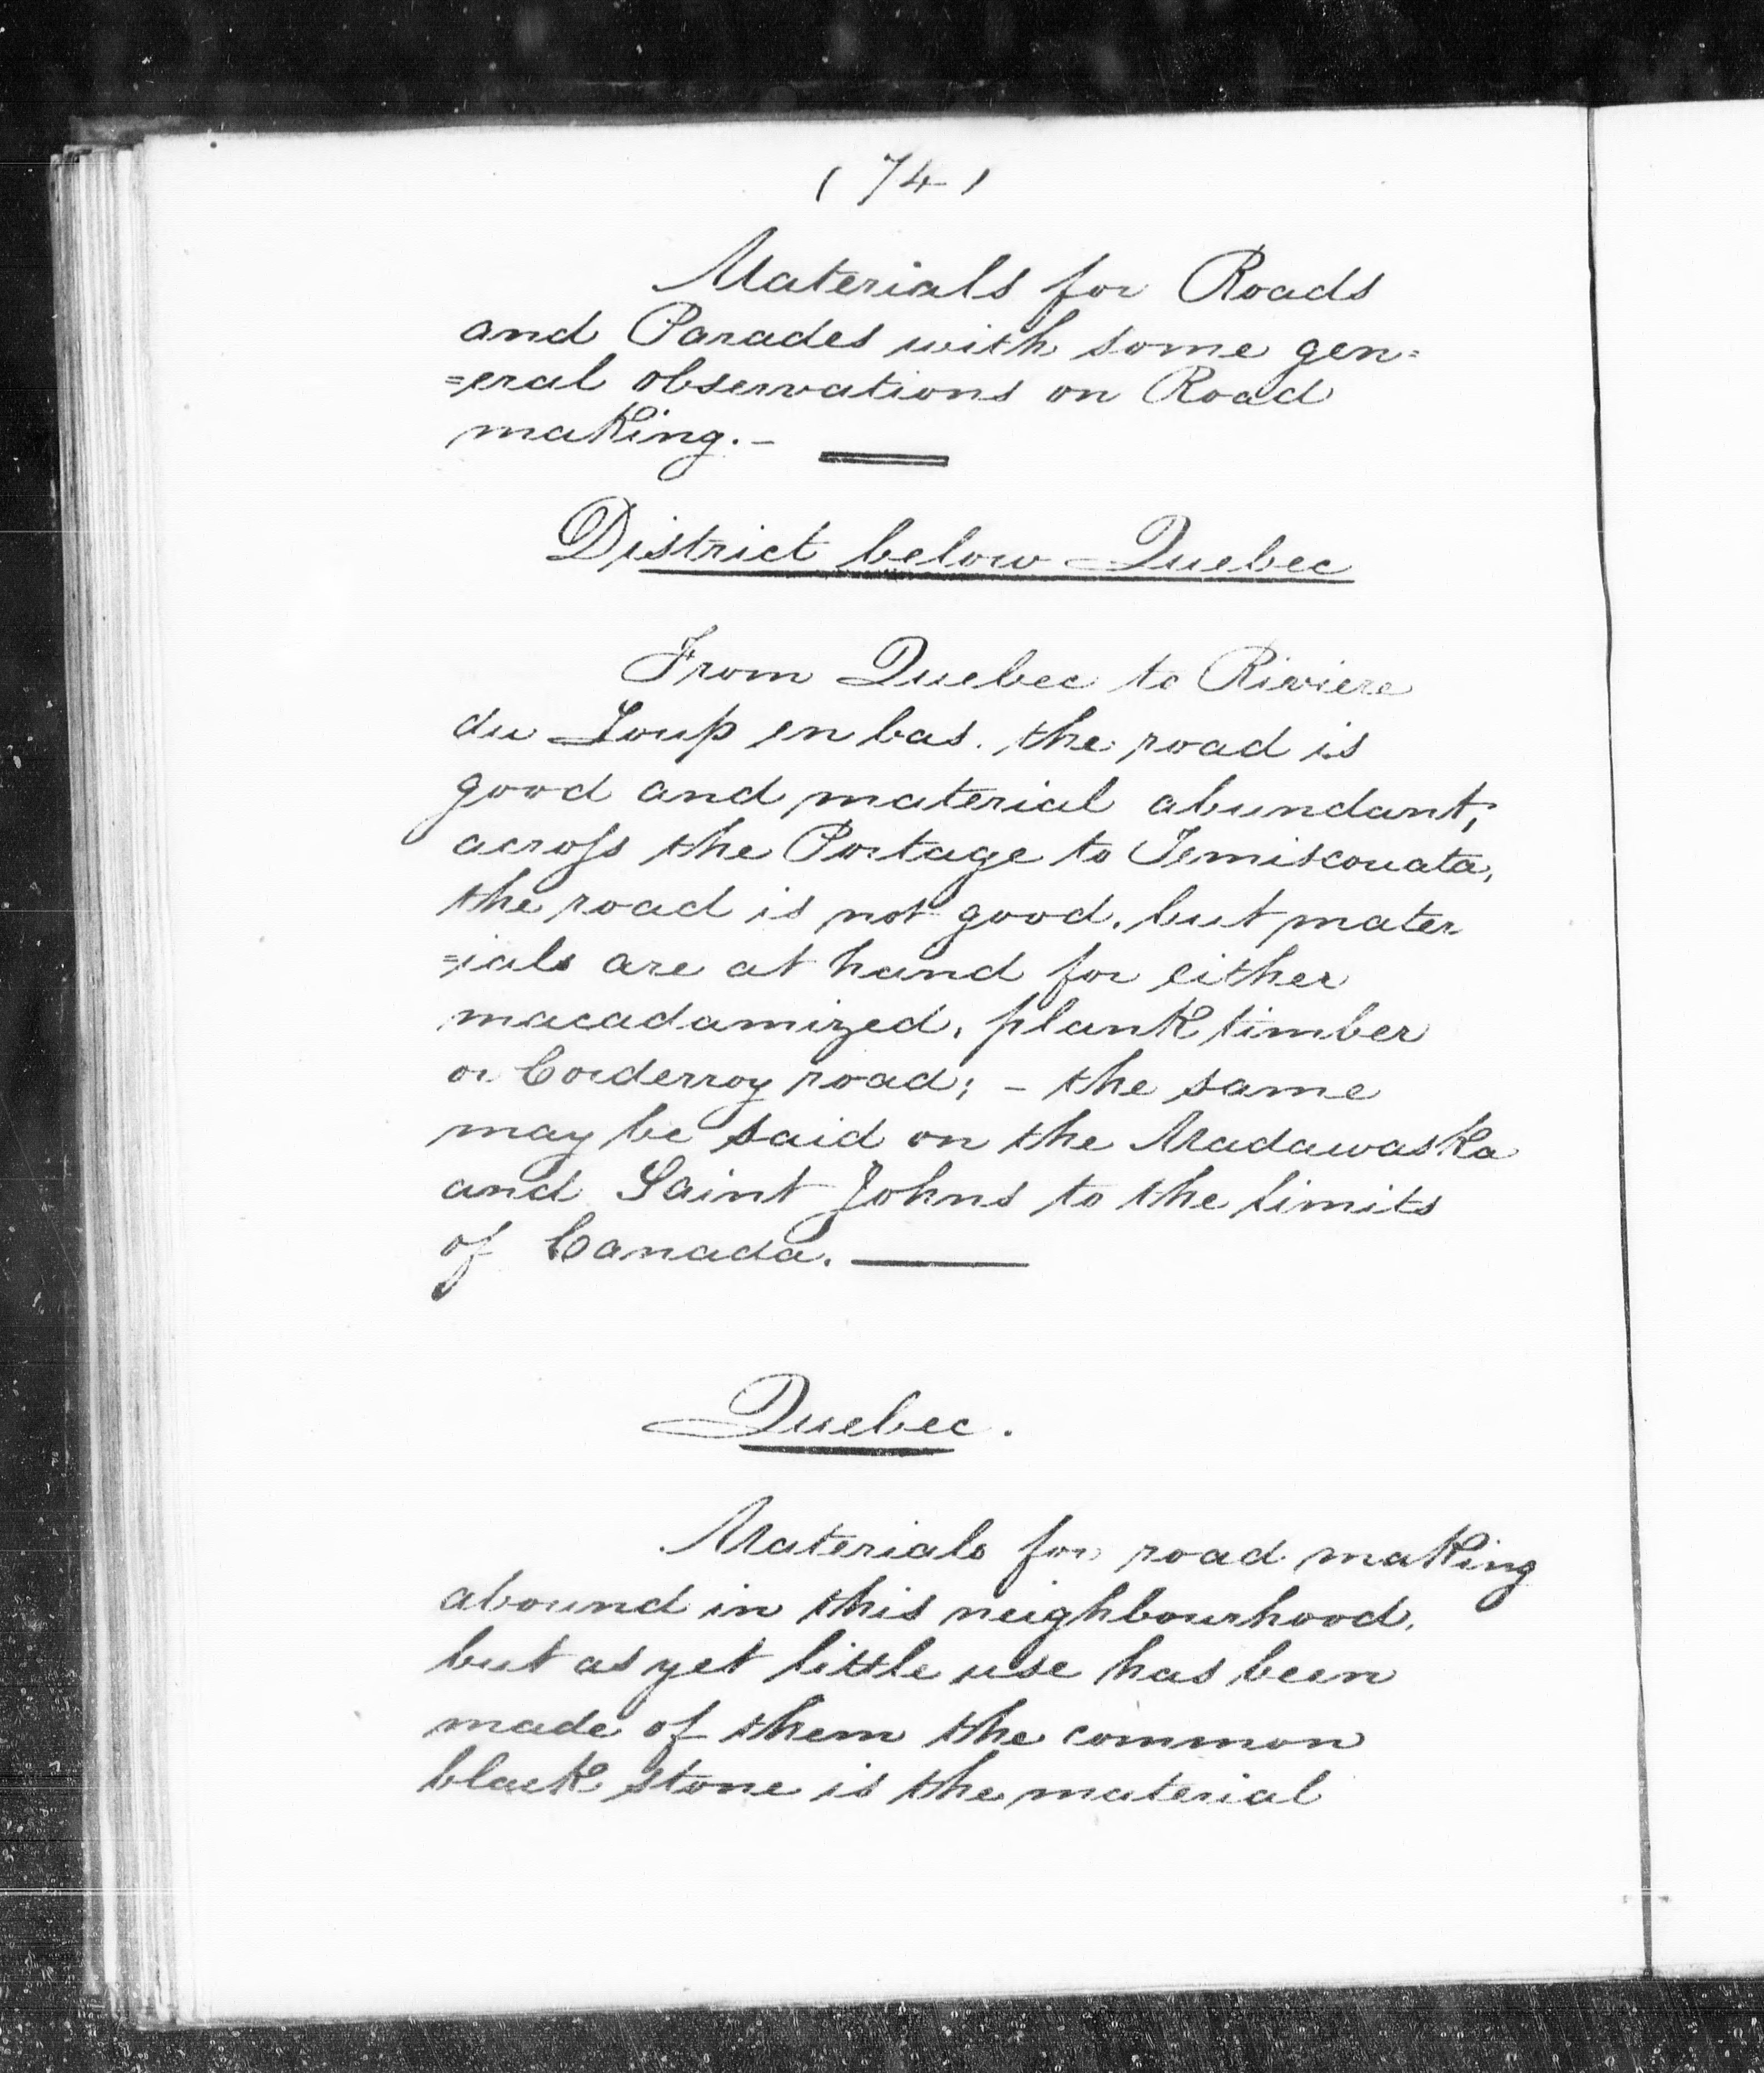 (74)
Materials for Roads
and Parades with some gen=
=eral observations on Road
making.-
District below Quebec
From Quebec to Riviere
du Loup en bas. the road is
good and material abundant;
across the Portage to Temiscouata,
the road is not good. but mater
=ials are at hand for either
macadamized, plank timber
or Corderroy road; - the same
may be said on the Madawaska
and Saint Johns to the limits
of Canada.
Quebec.
Materials for road making
abound in this neighbourhood,
but as yet little use has been
made of them the common
black stone is the material